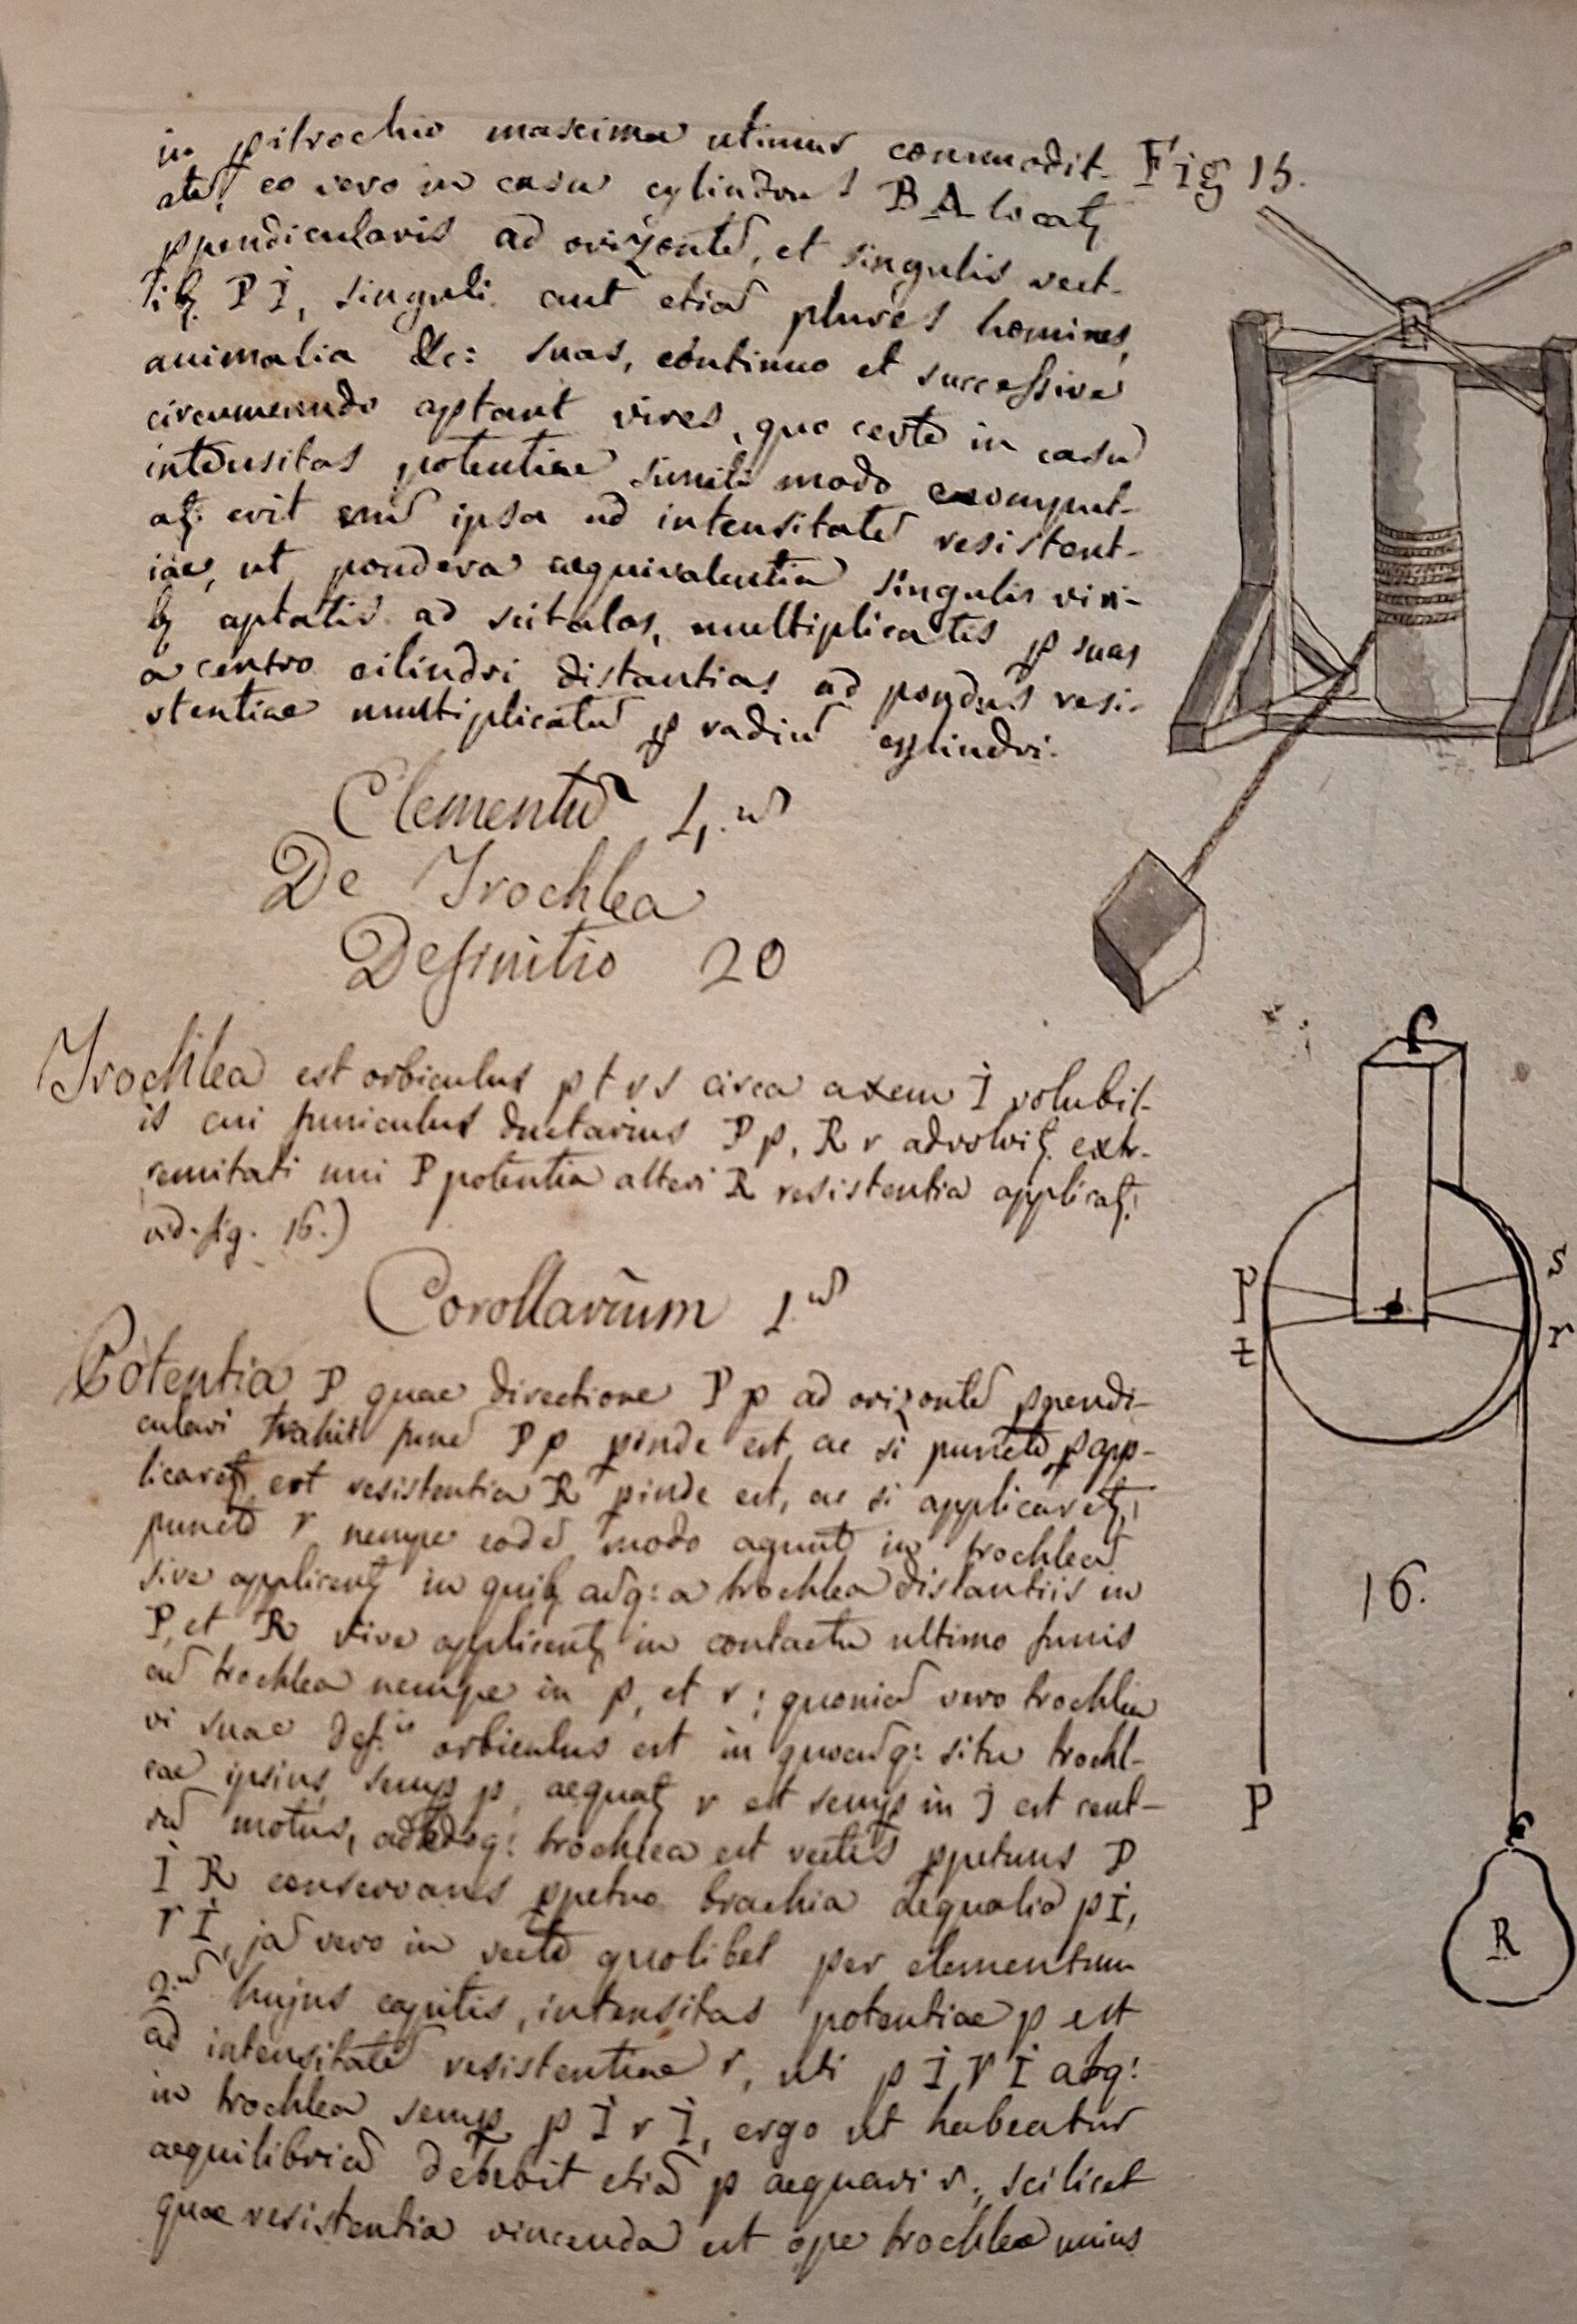 in pitrochio maxima utimur commodit-
ate, eo vero in casu cylindrus BA locatꝫ
ꝑpendicularis ad orizontẽ, et singulis vect-
ibꝫ PI, singuli aut etiã plures homines,
animalia &c: suas, continuo et successive
circumeundo aptant vires, quo certe in casu
intensitas potentiae simili modo compute-
atꝫ. erit enĩ ipsa ad intensitatẽ resistent-
iae, ut pondera aequivalentia singulis viri-
bꝫ aptatis ad scitalas, multiplicatis ꝑ suas
a centro cilindri distantias ad pondus resi-
stentiae multiplicatũ ꝑ radiũ cylindri.
Fig 15.
Elementũ 1.ũ
De Trochlea
Definitio 20
Trochlea est orbiculus p t r s circa axem I volubil-
is cui funiculus ductarius P p, R r advolvitꝫ. ext-
remitati uni P potentia alteri R resistentia applicatꝫ.
vid. fig. 16.)
Corollarium 1.ũ
Potentia P quae directione P p ad orizontẽ ꝑpendi-
culari trahit funẽ P p ꝑinde est, ac si puncto p app-
licaretꝫ, est resistentia R ꝑinde est, ac si applicaretꝫ,
puncto r nempe eodẽ modo agunt in trochleã
sive applicentꝫ in quibꝫ adq: a trochlea distantiis in
P, et R sive applicentꝫ in contactu ultimo funis
cũ trochlea nempe in p, et r; quoniã vero trochlea
vi suae def.is orbiculus est in quocũq: situ trochl-
eae ipsius, semꝑ p, aequatꝫ r et semꝑ in I est cent-
rũ motus, adeoq: trochlea est vectis ꝑpetuus P
I R conservans ꝑpetuo brachia aequalia p I,
r I, jã vero in vecte quolibet per elementum
2.ũ hujus capitis, intensitas potentiae p est
ad intensitatẽ resistentiae r, uti p I r I atq:
in trochlea semꝑ p I r I, ergo ut habeatur
aequilibriũ debebit etiã p aequari r; scilicet
quae resistentia vincenda est ope trochlea unius
p
t
s
r
16.
P
R